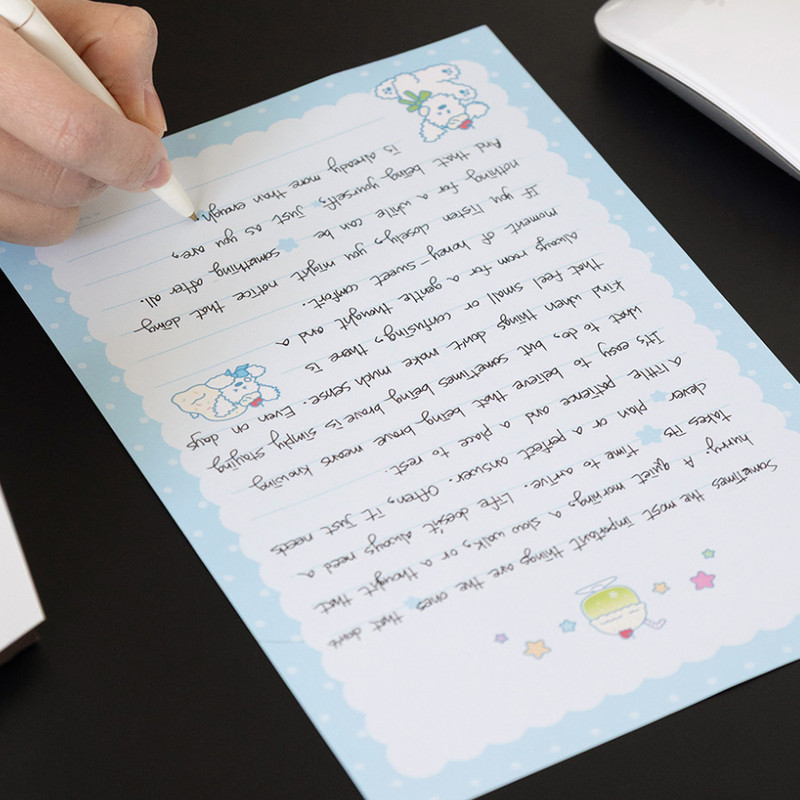 Sometimes the most important things are the ones that don't
hurry. A quiet morning, a slow walk, or a thought that
takes its time to arrive. Life doesn't always need a
clever plan or a perfect answer. Often, it just needs
a little patience and a place to rest.
It's easy to believe that being brave means knowing
what to do, but sometimes being brave is simply staying
kind when things don't make much sense. Even on days
that feel small or confusing, there is
always room for a gentle thought and a
moment of honey-sweet comfort.
If you listen closely, you might notice that doing
nothing for a while can be something after all.
And that being yourself, just as you are,
is already more than enough.